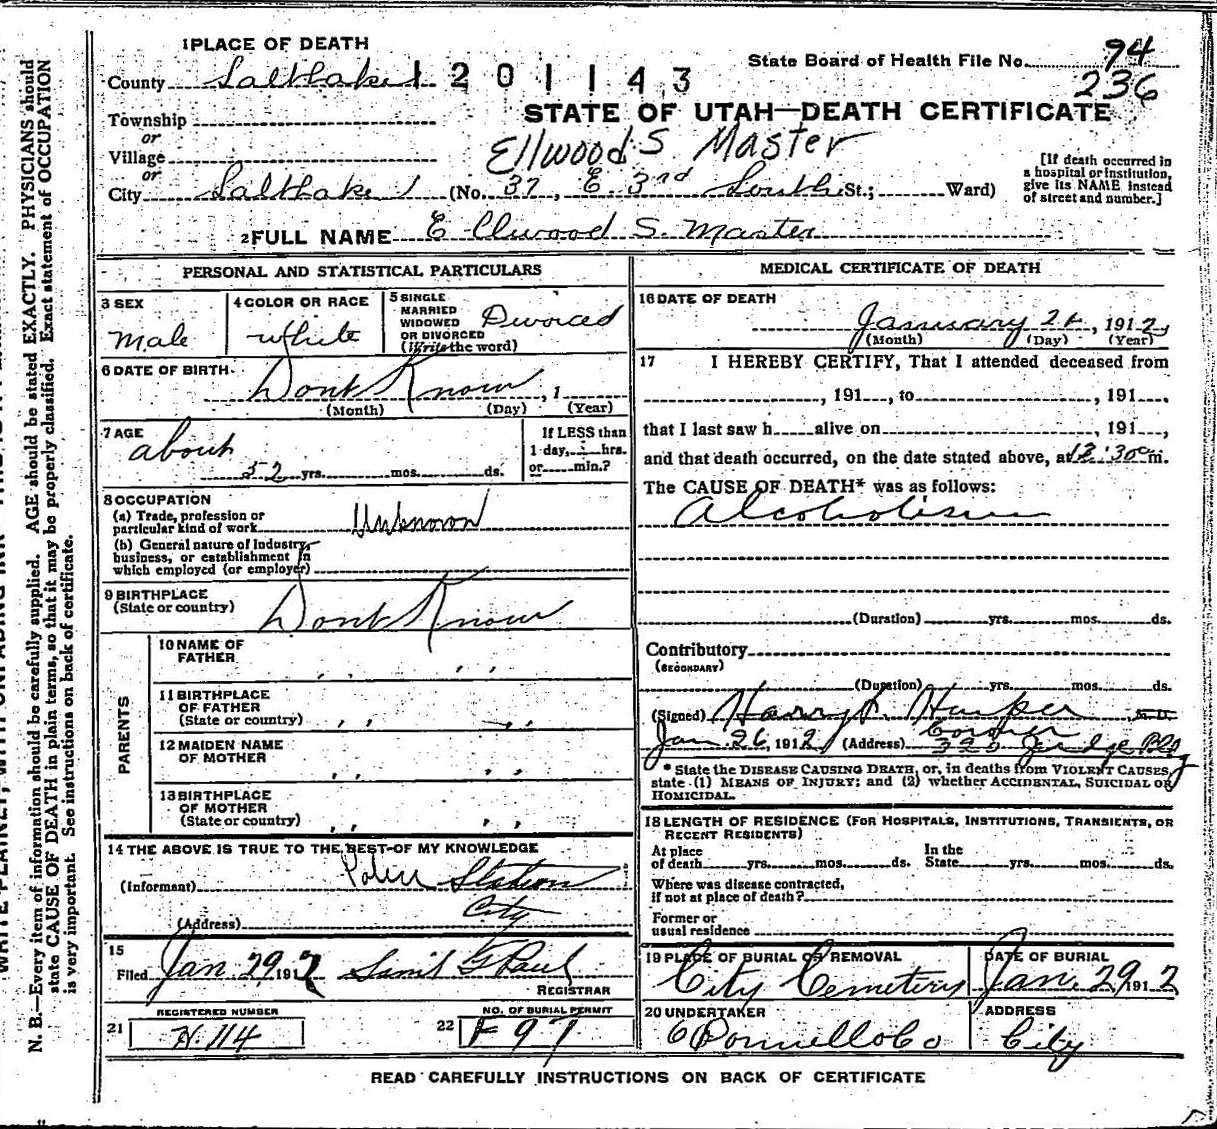 1 PLACE OF DEATH
County Salt Lake 1 2 0 1 1 4 3
State Board of Health File No. 94
236
STATE OF UTAH—DEATH CERTIFICATE
Township
or
Village
or
Ellwood S Master
City Salt Lake (No. 37, E 3rd South St.; Ward)
[If death occurred in
a hospital or institution,
give its NAME instead
of street and number.]
2 FULL NAME E Clwood S. Master
PERSONAL AND STATISTICAL PARTICULARS
3 SEX
male
4 COLOR OR RACE
white
5 SINGLE
MARRIED
WIDOWED
OR DIVORCED
(Write the word)
Divorced
6 DATE OF BIRTH
Dont Know, 1
(Month) (Day) (Year)
7 AGE
about
52 yrs. mos. ds.
If LESS than
1 day, hrs.
or min.?
8 OCCUPATION
(a) Trade, profession or
particular kind of work Unknown
(b) General nature of Industry,
business, or establishment in
which employed (or employer)
9 BIRTHPLACE
(State or country) Dont Know
PARENTS
10 NAME OF
FATHER , ,
11 BIRTHPLACE
OF FATHER
(State or country) , , , ,
12 MAIDEN NAME
OF MOTHER , , , ,
13 BIRTHPLACE
OF MOTHER
(State or country) , , , ,
14 THE ABOVE IS TRUE TO THE BEST OF MY KNOWLEDGE
(Informant) Police Station
(Address) City
15
Filed Jan. 29, 1912
REGISTRAR
REGISTERED NUMBER
21 H 114
NO. OF BURIAL PERMIT
22 F 97
MEDICAL CERTIFICATE OF DEATH
16 DATE OF DEATH
January, 1912
(Month) (Day) (Year)
17 I HEREBY CERTIFY, That I attended deceased from
, 191 , to , 191 ,
that I last saw h alive on , 191 ,
and that death occurred, on the date stated above, at 12:30 m.
The CAUSE OF DEATH* was as follows:
Alcoholism
(Duration) yrs. mos. ds.
Contributory
(SECONDARY)
(Duration) yrs. mos. ds.
(Signed) Harry Harper M. D.
Coroner
Jan. 26, 1912 (Address) 320 Judge Bldg
* State the DISEASE CAUSING DEATH, or, in deaths from VIOLENT CAUSES,
state (1) MEANS OF INJURY; and (2) whether ACCIDENTAL, SUICIDAL OR
HOMICIDAL.
18 LENGTH OF RESIDENCE (FOR HOSPITALS, INSTITUTIONS, TRANSIENTS, OR
RECENT RESIDENTS)
At place
of death yrs. mos. ds. In the
State yrs. mos. ds.
Where was disease contracted,
if not at place of death?
Former or
usual residence
19 PLACE OF BURIAL OR REMOVAL
City Cemetery
DATE OF BURIAL
Jan. 29, 1912
20 UNDERTAKER
O Donnell & Co
ADDRESS
City
READ CAREFULLY INSTRUCTIONS ON BACK OF CERTIFICATE
N. B.—Every item of information should be carefully supplied. AGE should be stated EXACTLY. PHYSICIANS should
state CAUSE OF DEATH in plain terms, so that it may be properly classified. Exact statement of OCCUPATION
is very important. See instructions on back of certificate.